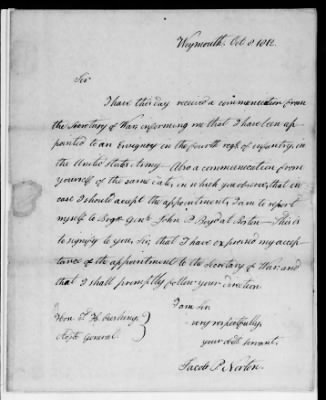 Weymouth, Oct 8 1812.
Sir
I have this day received a communication from
the Secretary of War, informing me that I have been ap-
pointed to an Ensigncy in the fourth regt of infantry, in
the United States Army. Also a communication from
yourself of the same date, in which you observe, that in
case I should accept the appointment, I am to report
myself to Brigr Genl John P Boyd at Boston – This is
to signify to you, Sir, that I have expressed my accep-
tance of the appointment to the Secretary of War, and
that I shall promptly follow your direction
I am Sir
very respectfully,
your obt servant,
Jacob P. Norton.
Hon. T. H. Cushing
Adjt General.